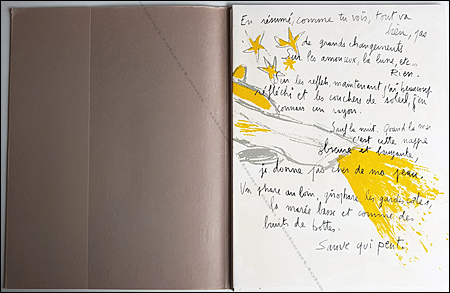 En résumé, comme tu vois, tout va
bien, pas
de grands changements.
Sur les amoureux, la lune, etc...
Rien.
Sur les reflets, maintenant j'ai beaucoup
réfléchi et les couchers de soleil, j'en
connais un rayon.
Sauf la nuit, quand la mer
c'est cette nappe
brune et bruyante,
je donne pas cher de ma peau.
Un phare au loin, les gardes-côtes,
la marée basse et comme des
bruits de bottes.
Sauve qui peut.